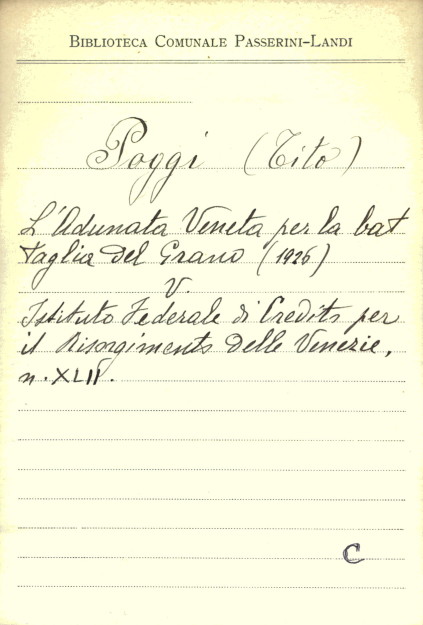 BIBLIOTECA COMUNALE PASSERINI-LANDI
Poggi (Tito)
L'Adunata Veneta per la bat
taglia del Grano (1926)
V.
Istituto Federale di Credito per
il Risorgimento delle Venezie,
n. XLII.
C